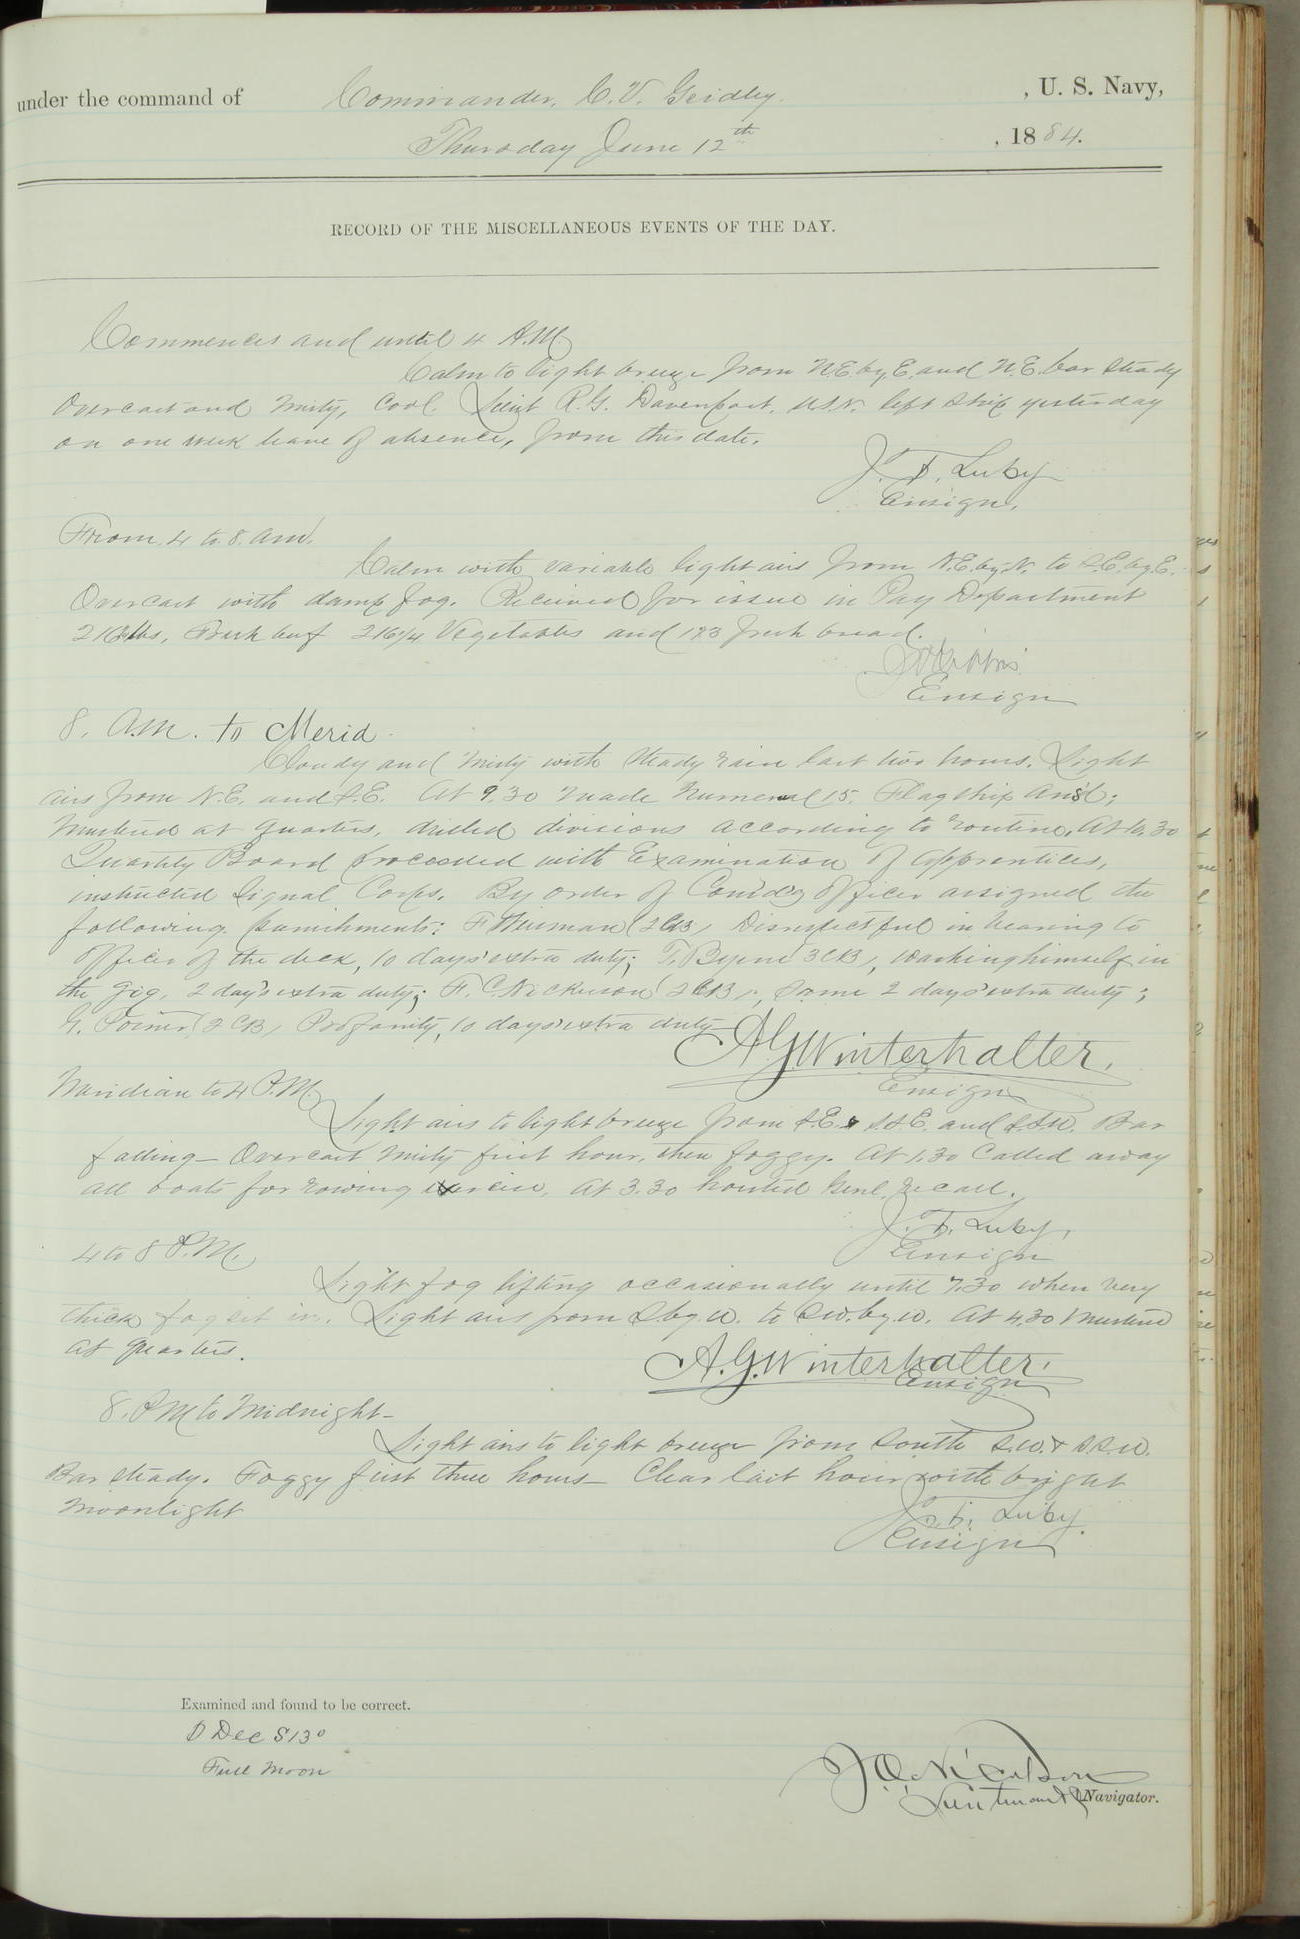 under the command of Commander, C. V. Gridley. , U. S. Navy,
Thursday June 12th , 1884.
RECORD OF THE MISCELLANEOUS EVENTS OF THE DAY.
Commences and until 4 A.M.
Calm to light breeze from N.E. by E. and N.E. bar steady
Overcast and misty, cool. Lieut R. G. Davenport, U.S.N. left ship yesterday
on one week leave of absence, from this date.
J. F. Luby
Ensign.
From 4 to 8. a.m.
Calm with variable light airs from N.E. by N. to S.E. by E.
Overcast with damp fog. Received for issue in Pay Department
lbs, Fresh beef 216 1/4 Vegetables and 173 fresh bread.
Ensign
8. A.M. to Merid.
Cloudy and misty with steady rain last two hours. Light
airs from N.E. and S.E. At 9.30 made numeral 15. Flagship Ans'd;
Mustered at quarters, drilled divisions according to routine. At 10.30
Quarterly Board proceeded with Examination of apprentices,
instructed Signal Corps. By order of Com'd'g Officer assigned the
following punishments: F Neuman (2CB) Disrespectful in bearing to
Officer of the deck, 10 days' extra duty; T. Byrne 3CB), washing himself in
the gig, 2 days' extra duty; F. C. Nickerson (2CB), Same 2 days' extra duty;
(2CB) Profanity, 10 days' extra duty
A.G. Winterhalter.
Ensign
Meridian to 4 P.M.
Light airs to light breeze from S.E. S.S.E. and S.S.W. Bar
falling— Overcast misty first hour, then foggy. At 1.30 Called away
all boats for rowing exercise, at 3.30 hoisted Genl. recall.
J. F. Luby,
Ensign
4 to 8 P.M.
Light fog lifting occasionally until 7.30 when very
thick fog set in. Light airs from S by W. to S.W. by W. At 4.30 Mustered
at quarters.
A.G. Winterhalter.
Ensign
8. P.M. to Midnight—
Light airs to light breeze from South S.W. & S.S.W.
Bar steady. Foggy first three hours— Clear last hour with bright
moonlight
J. F. Luby.
Ensign
Examined and found to be correct.
D Dec S 13°
Full Moon
Lieutenant & Navigator.